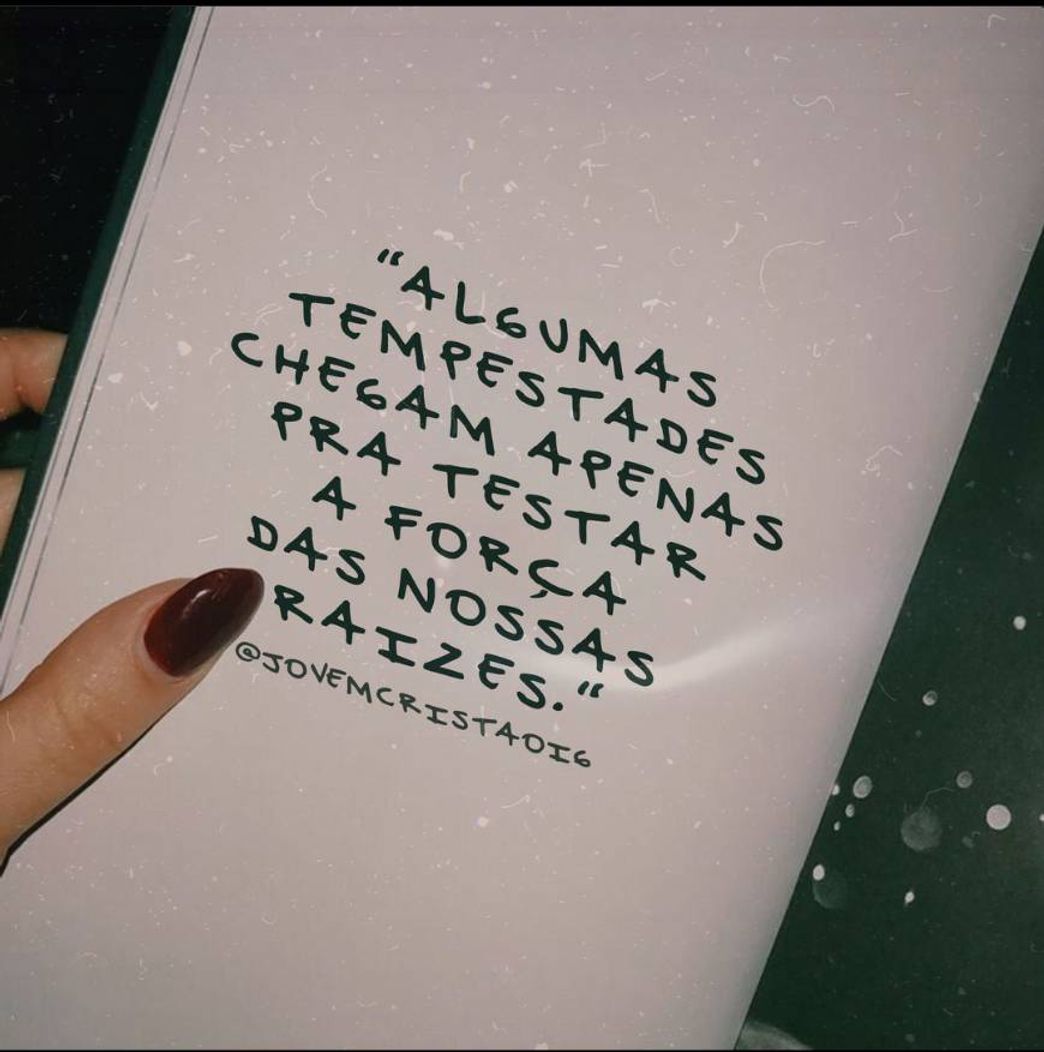 “ALGUMAS
TEMPESTADES
CHEGAM APENAS
PRA TESTAR
A FORÇA
DAS NOSSAS
RAIZES.“
@JOVEMCRISTAOIG